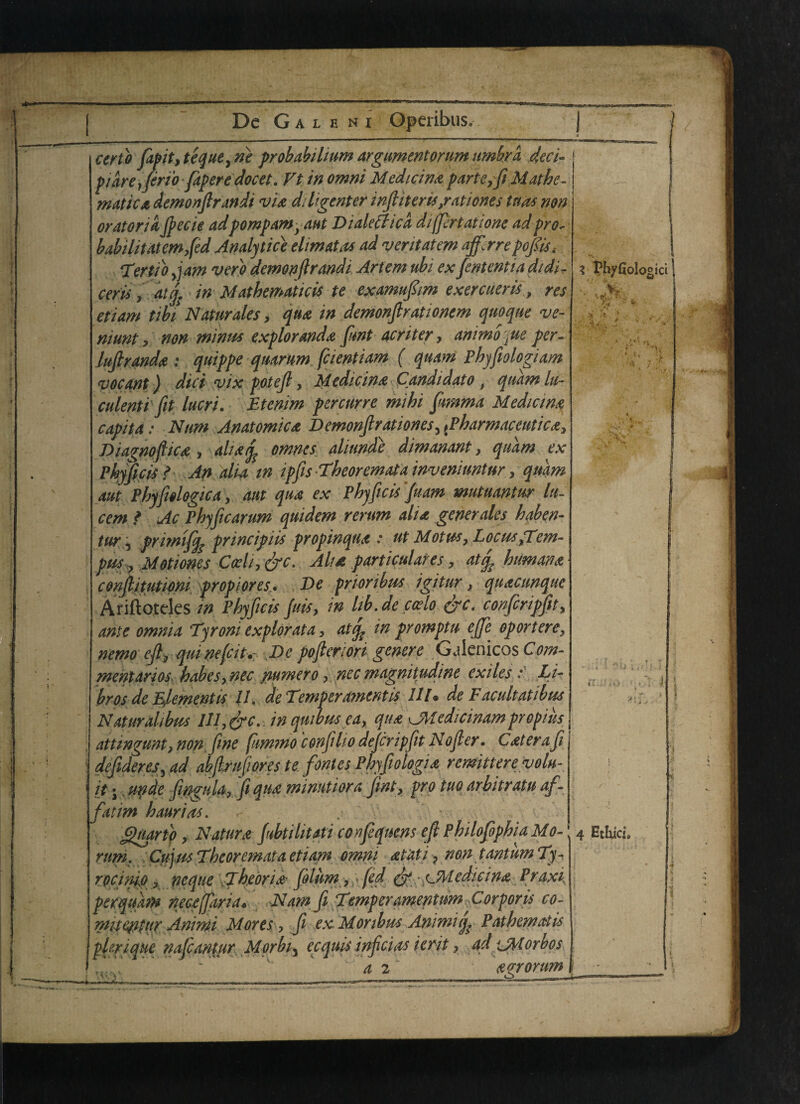 De GALENI Operibus.
certò sapit, téque, ne probabilium argumentorum umbrâ deci-
piare, seriò sapere docet. Vt in omni Medicinæ parte, si Mathe-
maticæ demonstrandi viæ diligenter institeris, rationes tuas non
oratoriâ specie ad pompam, aut Dialecticâ dissertatione ad pro-
babilitatem, sed Analyticè elimatas ad veritatem afferre possis.
Tertiò, jam verò demonstrandi Artem ubi ex sententia didi-
3 Physiologici
ceris, atq; in Mathematicis te examussim exercueris, res
etiam tibi Naturales, quæ in demonstrationem quoque ve-
niunt, non minus explorandæ sunt acriter, animóque per-
lustrandæ: quippe quarum scientiam (quam Physiologiam
vocant) dici vix potest, Medicinæ Candidato, quàm lu-
culenti sit lucri. Etenim percurre mihi summa Medicinæ
capita: Num Anatomicæ Demonstrationes, Pharmaceuticæ,
Diagnosticæ, aliæq; omnes aliundè dimanant, quàm ex
Physicis? An alia in ipsis Theoremata inveniuntur, quàm
aut Physiologica, aut quæ ex Physicis suam mutuantur lu-
cem? Ac Physicarum quidem rerum aliæ generales haben-
tur, primisq; principiis propinquæ: ut Motus, Locus, Tem-
pus, Motiones Cœli, &c. Aliæ particulares, atq; humanæ
constitutioni propiores. De prioribus igitur, quæcunque
Aristoteles in Physicis suis, in lib. de cœlo &c. conscripsit,
ante omnia Tyroni explorata, atq; in promptu esse oportere,
nemo est, qui nescit. De posteriori genere Galenicos Com-
mentarios habes, nec numero, nec magnitudine exiles: Li-
bros de Elementis II. de Temperamentis III. de Facultatibus
Naturalibus III, &c. in quibus ea, quæ Medicinam propiùs
attingunt, non sine summo consilio descripsit Noster. Cætera si
desideres, ad abstrusiores te fontes Physiologiæ remittere volu-
it; unde singula, si qua minutiora sint, pro tuo arbitratu af-
fatim haurias.
Quartò, Naturæ subtilitati consequens est Philosophia Mo-
4 Ethici.
rum. Cujus Theoremata etiam omni ætati, non tantùm Ty-
rocinio, neque Theoriæ solùm, sed & Medicinæ Praxi
perquàm necessaria. Nam si Temperamentum Corporis co-
mitentur Animi Mores, si ex Moribus Animiq; Pathematis
plerique nascantur Morbi, ecquis inficias ierit, ad Morbos
a 2
ægrorum